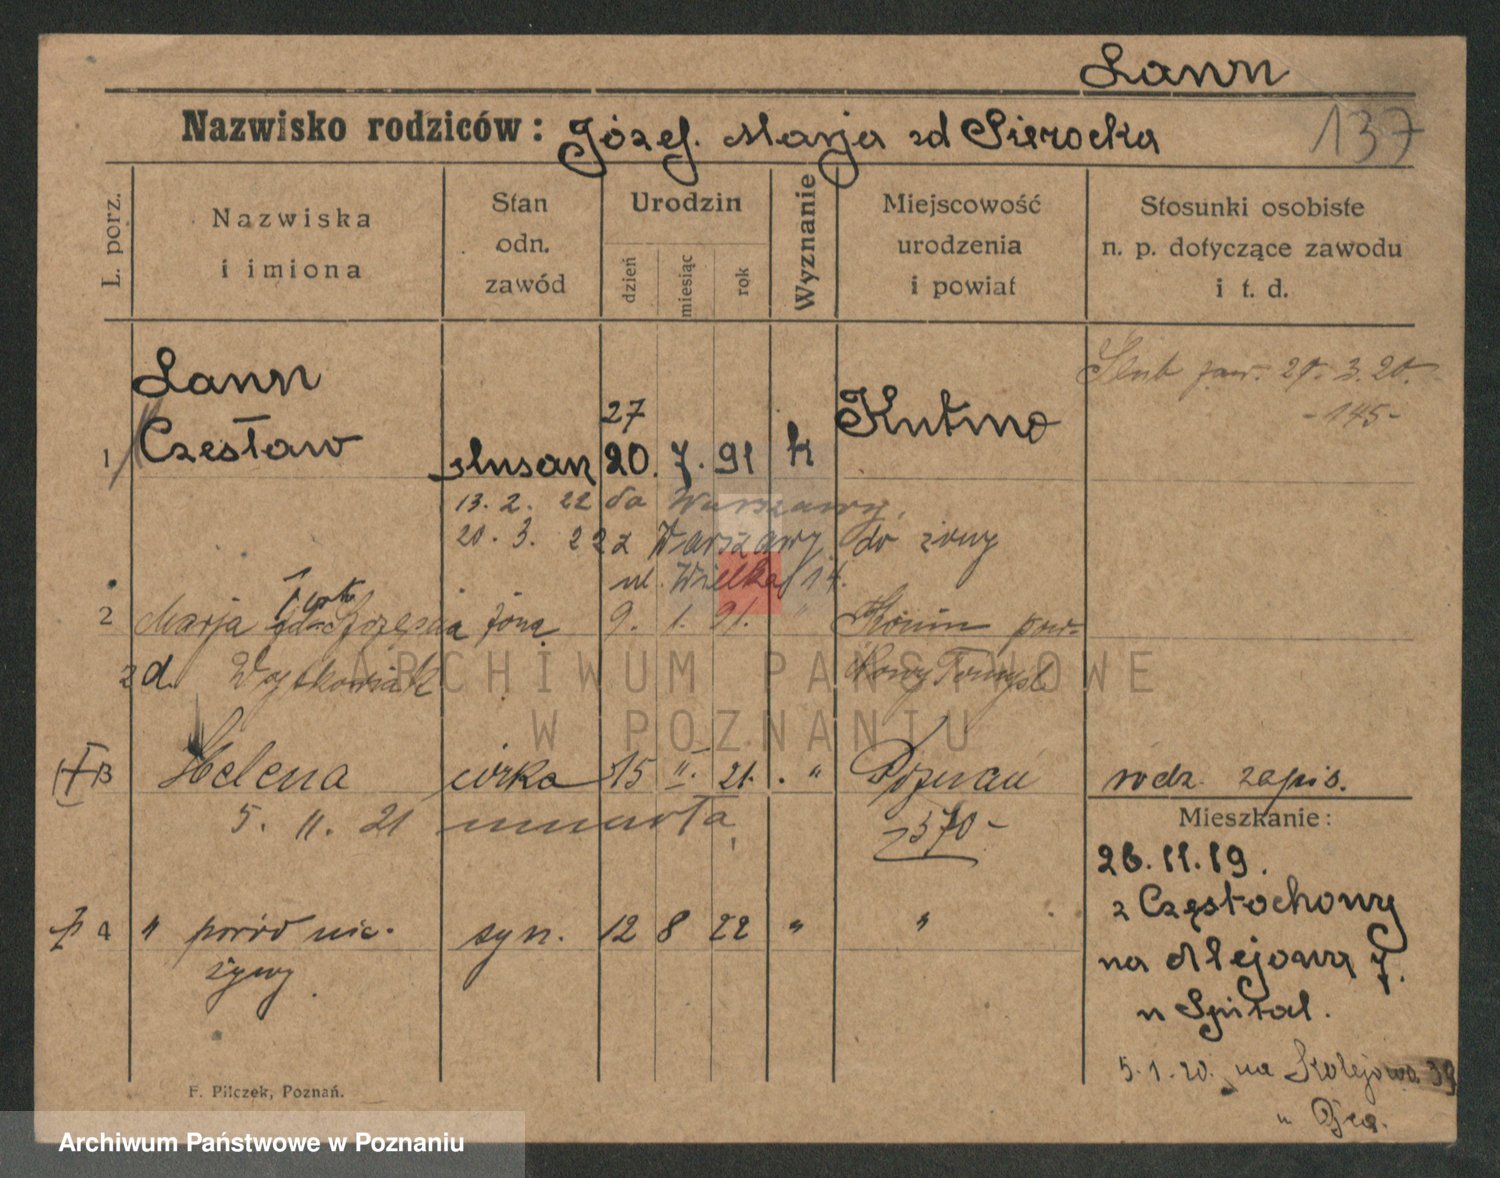 Lawn
137
Nazwisko rodziców: Józef. Marja zd Sierocka
L. porz.
Nazwiska i imiona
Stan odn. zawód
Urodzin
dzień miesiąc rok
Wyznanie
Miejscowość urodzenia i powiat
Stosunki osobiste n. p. dotyczące zawodu i t. d.
Ślub zaw. 29. 3. 20.
-145-
Lawn
27
1 Czesław ślusarz 20. 7. 91 k Kutno
13. 2. 22 do Warszawy.
20. 3. 22 z Warszawy do żony
ul. Wielka 14.
2 Marja żona 9. 1. 91. " pow.
zd. Nowy Tomyśl
3 Helena córka 15 II. 21. " Poznań rodz. zapis.
5. 11. 21 umarła
Mieszkanie:
26.11.19.
z Częstochowy
4 " poród nie- syn. 12 8 22 " "
żywy
na Alejową 7.
u Spitał.
5.1.20. na Kolejowa 39
F. Pilczek, Poznań.
ARCHIWUM PAŃSTWOWE
W POZNANIU
Archiwum Państwowe w Poznaniu